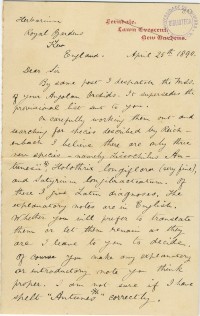 Herbarium
Royal Gardens
Kew
England.
Lawn Crescent,
Kew Gardens.
April 25th 1890.
Dear Sir
By same post I despatch the
of your Angolan Orchids. It supersedes the
provisional list sent to you.
On carefully working them out and
searching for species described by Reich-
enbach I believe there are only three
new species - namely
Habenaria
and Satyrium
these I give Latin diagnoses. The
explanatory notes are in English.
Whether you will prefer to translate
them or let them remain as they
are I leave to you to decide.
Of course you make any explanatory
or introductory note you think
proper. I am not sure if I have
spelt "Antunes" correctly.